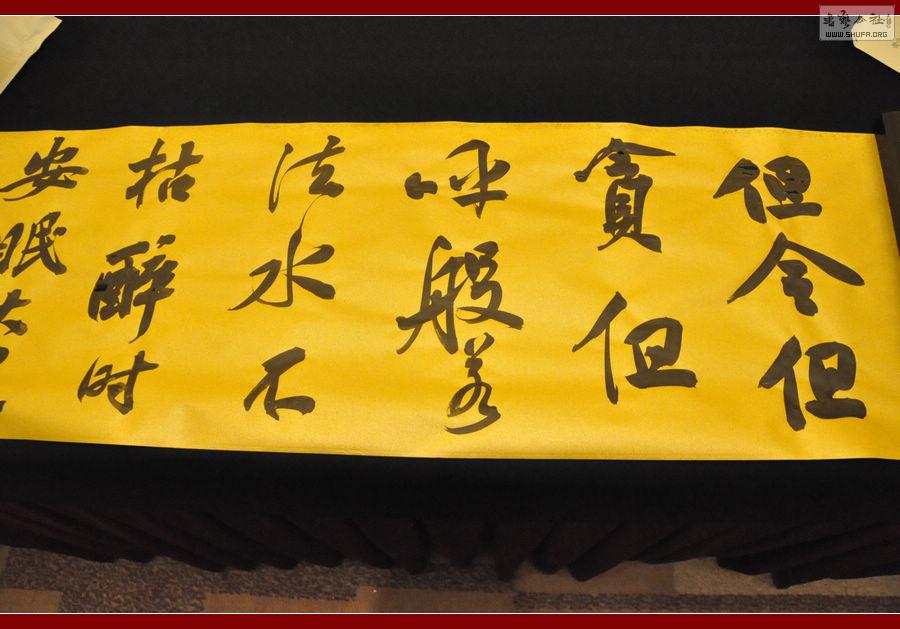 但令但
貪但
呼般若
法水不
枯醉时
安眠
书艺公社
WWW.SHUFA.ORG